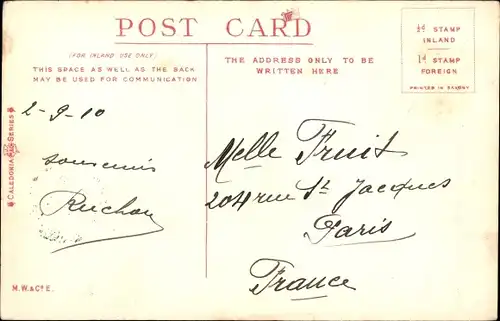 POST CARD
(FOR INLAND USE ONLY)
THIS SPACE AS WELL AS THE BACK
MAY BE USED FOR COMMUNICATION
THE ADDRESS ONLY TO BE
WRITTEN HERE
½d STAMP
INLAND
1d STAMP
FOREIGN
PRINTED IN SAXONY
CALEDONIA SERIES
2-9-10
souvenirs
Melle Fruit
204 rue St Jacques
Paris
France
M.W.&Co E.